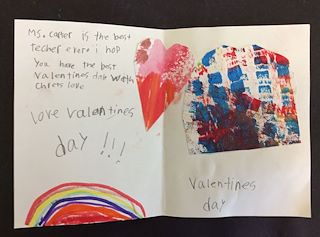 Ms. carter is the best
techer evere i hop
you have the best
valentines day with
Chrets love
love valentines
day !!!
valentines
day